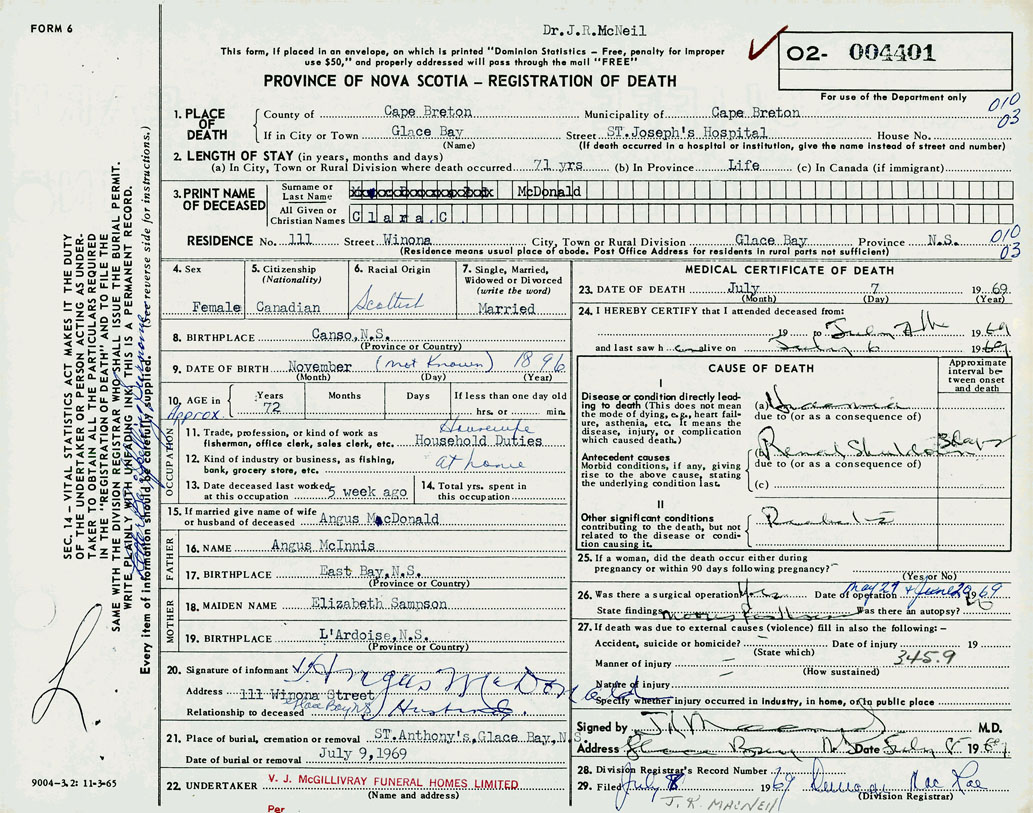 FORM 6
Dr.J.R.McNeil
This form, if placed in an envelope, on which is printed "Dominion Statistics – Free, penalty for improper
use $50," and properly addressed will pass through the mail "FREE"
O2- 004401
PROVINCE OF NOVA SCOTIA – REGISTRATION OF DEATH
For use of the Department only
010
03
1. PLACE OF DEATH County of Cape Breton Municipality of Cape Breton
If in City or Town Glace Bay Street ST.Joseph's Hospital House No.
(Name) (If death occurred in a hospital or institution, give the name instead of street and number)
2. LENGTH OF STAY (in years, months and days)
(a) In City, Town or Rural Division where death occurred 71 yrs (b) In Province Life (c) In Canada (if immigrant)
3. PRINT NAME OF DECEASED Surname or Last Name McDonald
All Given or Christian Names Clara.C.
RESIDENCE No. 111 Street Winona City, Town or Rural Division Glace Bay Province N.S. 010
(Residence means usual place of abode. Post Office Address for residents in rural parts not sufficient) 03
4. Sex Female
5. Citizenship (Nationality) Canadian
6. Racial Origin Scottish
7. Single, Married, Widowed or Divorced (write the word) Married
8. BIRTHPLACE Canso,N.S.
(Province or Country)
9. DATE OF BIRTH November (not known) 1896
(Month) (Day) (Year)
10. AGE in Years 72 Months Days If less than one day old hrs. or min.
Approx.
OCCUPATION
11. Trade, profession, or kind of work as fisherman, office clerk, sales clerk, etc. Housewife Household Duties
12. Kind of industry or business, as fishing, bank, grocery store, etc. at home
13. Date deceased last worked at this occupation 5 week ago
14. Total yrs. spent in this occupation
15. If married give name of wife or husband of deceased Angus MacDonald
FATHER
16. NAME Angus McInnis
17. BIRTHPLACE East Bay,N.S.
(Province or Country)
MOTHER
18. MAIDEN NAME Elizabeth Sampson
19. BIRTHPLACE L'Ardoise,N.S.
(Province or Country)
20. Signature of informant Angus McDonald
Address 111 Winona Street
Glace Bay N.S.
Relationship to deceased Husband
21. Place of burial, cremation or removal ST.Anthony's,Glace Bay,N.S.
Date of burial or removal July 9,1969
22. UNDERTAKER V. J. McGILLIVRAY FUNERAL HOMES LIMITED
(Name and address)
Per
MEDICAL CERTIFICATE OF DEATH
23. DATE OF DEATH July 7 1969
(Month) (Day) (Year)
24. I HEREBY CERTIFY that I attended deceased from:
19 to 1969
and last saw h er alive on July 6 1969
CAUSE OF DEATH
Approximate interval between onset and death
I
Disease or condition directly leading to death (This does not mean the mode of dying, e.g., heart failure, asthenia, etc. It means the disease, injury, or complication which caused death.)
(a) Uraemia
due to (or as a consequence of)
Antecedent causes
Morbid conditions, if any, giving rise to the above cause, stating the underlying condition last.
Renal Shutdown 3 days
due to (or as a consequence of)
(c)
II
Other significant conditions contributing to the death, but not related to the disease or condition causing it.
25. If a woman, did the death occur either during pregnancy or within 90 days following pregnancy?
(Yes or No)
26. Was there a surgical operation? Yes Date of operation May 29 & June 20 1969
State findings Was there an autopsy?
27. If death was due to external causes (violence) fill in also the following: –
Accident, suicide or homicide? Date of injury 19
(State which) 345.9
Manner of injury
(How sustained)
Nature of injury
Specify whether injury occurred in Industry, in home, or in public place
Signed by M.D.
Address Glace Bay N.S. Date July 8 1969
28. Division Registrar's Record Number
29. Filed July 8 1969 Mac Rae
(Division Registrar)
J. R. MACNEIL
SEC. 14 – VITAL STATISTICS ACT MAKES IT THE DUTY
OF THE UNDERTAKER OR PERSON ACTING AS UNDER-
TAKER TO OBTAIN ALL THE PARTICULARS REQUIRED
IN THE "REGISTRATION OF DEATH" AND TO FILE THE
SAME WITH THE DIVISION REGISTRAR WHO SHALL ISSUE THE BURIAL PERMIT.
WRITE PLAINLY WITH UNFADING INK, THIS IS A PERMANENT RECORD.
Every item of information should be carefully supplied (see reverse side for instructions.)
9004–3.2: 11-3-65